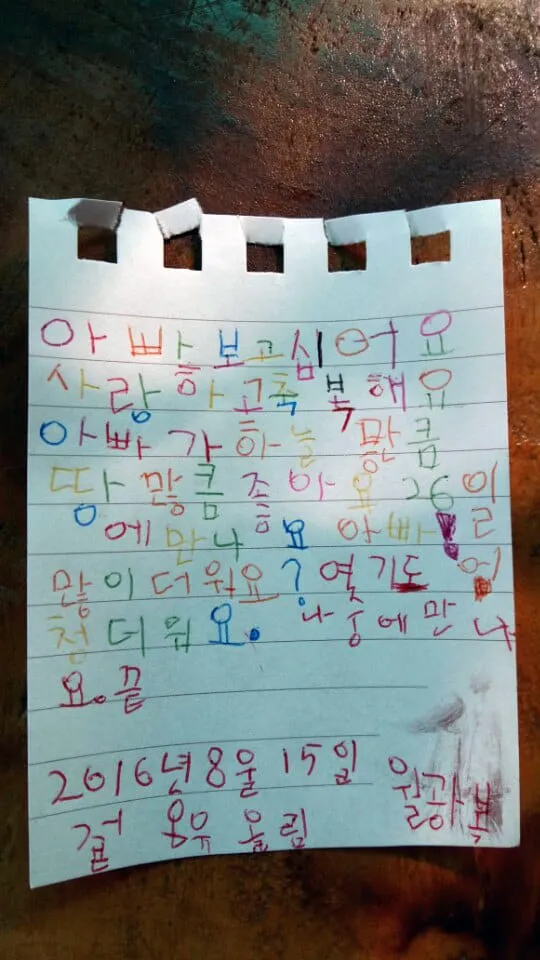 아빠 보고십어요
사랑하고축복해요
아빠가 하늘 많큼
땅 많큼 좋아요 26일
에 만나요 아빠!
많이 더워요? 엿기도 엄
청 더워요. 나중에만나
요. 끝
2016년 8월 15일 월
올림